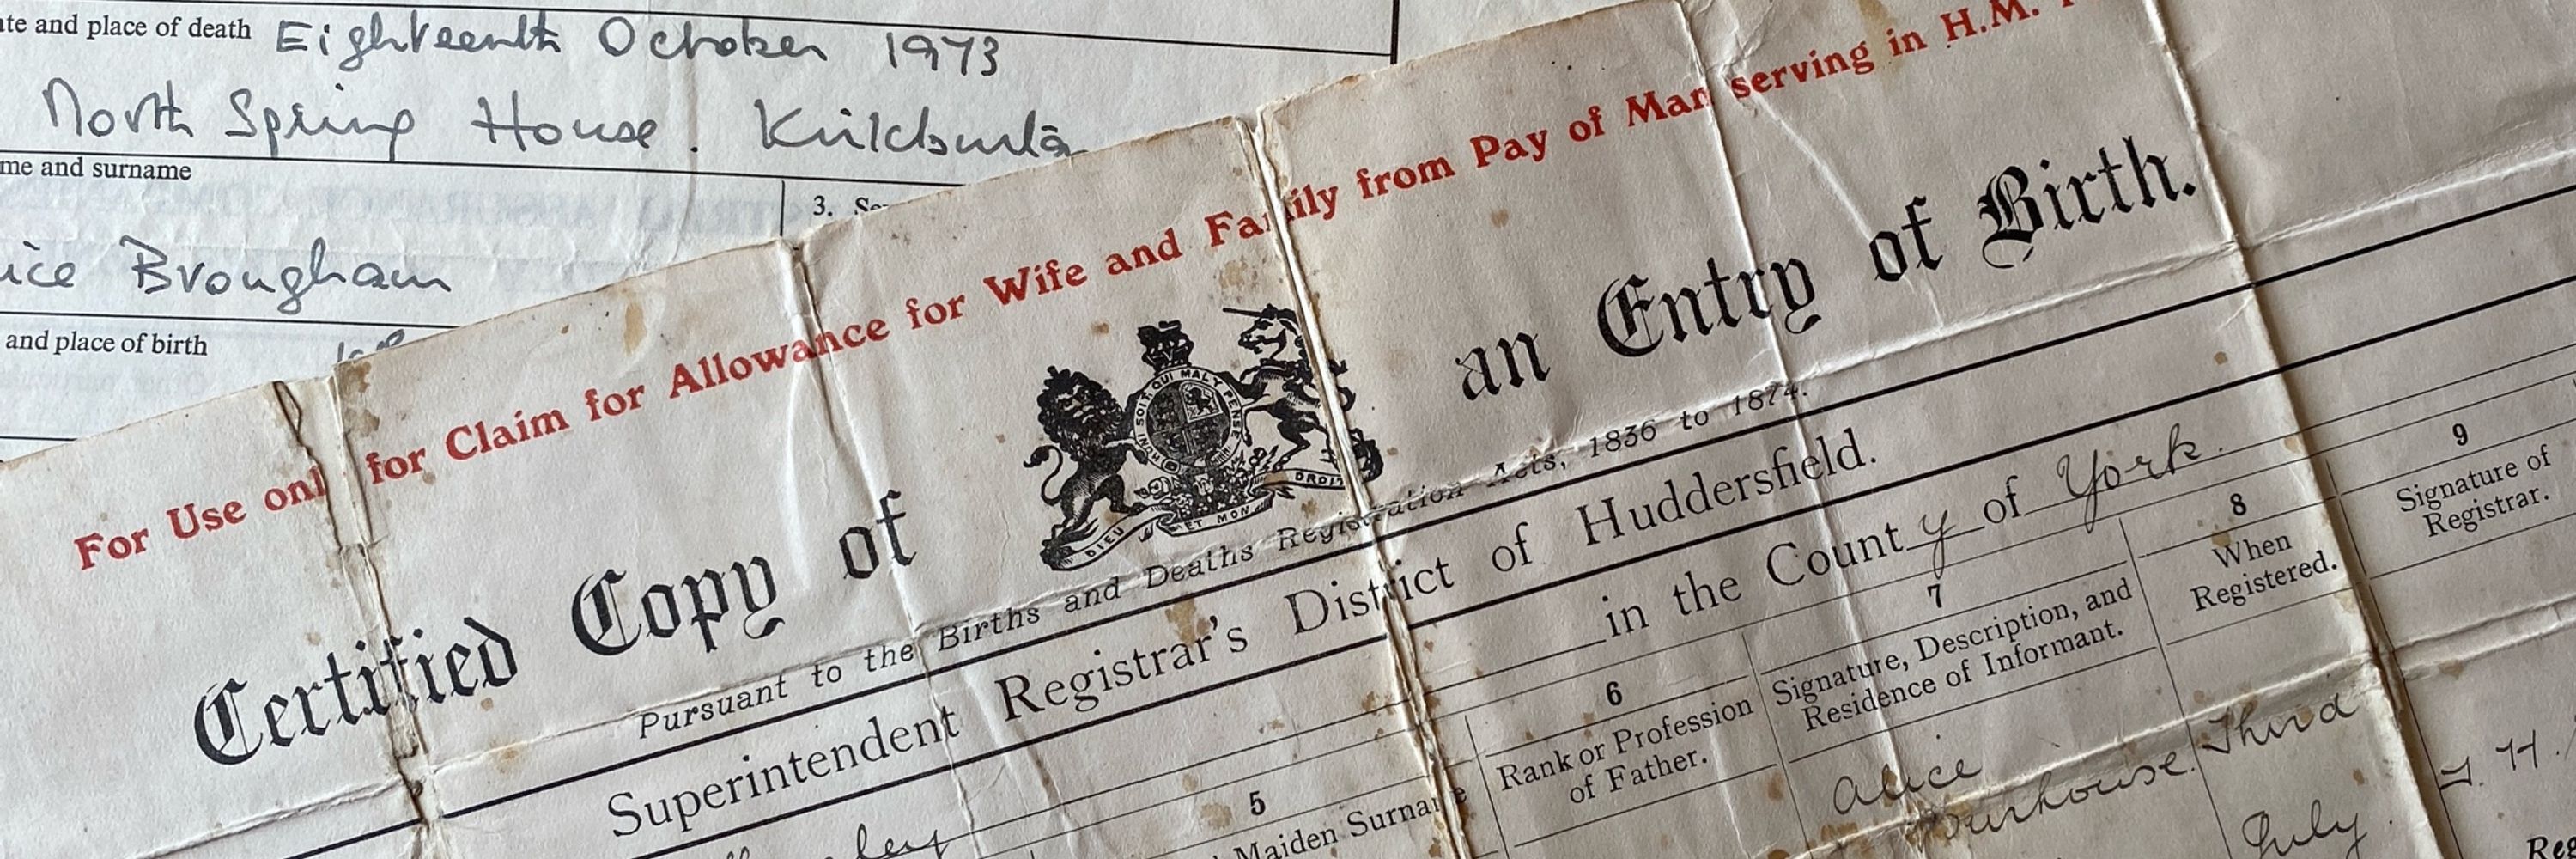 te and place of death Eighteenth October 1973
North Spring House. Kirkburton
me and surname
3.
ice Brougham
and place of birth
For Use onl for Claim for Allowance for Wife and Family from Pay of Man serving in H.M.
Certified Copy of an Entry of Birth.
HONI SOIT QUI MAL Y PENSE
DIEU ET MON DROIT
Pursuant to the Births and Deaths Registration Acts, 1836 to 1874.
Superintendent Registrar's District of Huddersfield.
in the County of York.
5
6
7
8
9
Maiden Surname
Rank or Profession
of Father.
Signature, Description, and
Residence of Informant.
When
Registered.
Signature of
Registrar.
Alice
Third
July